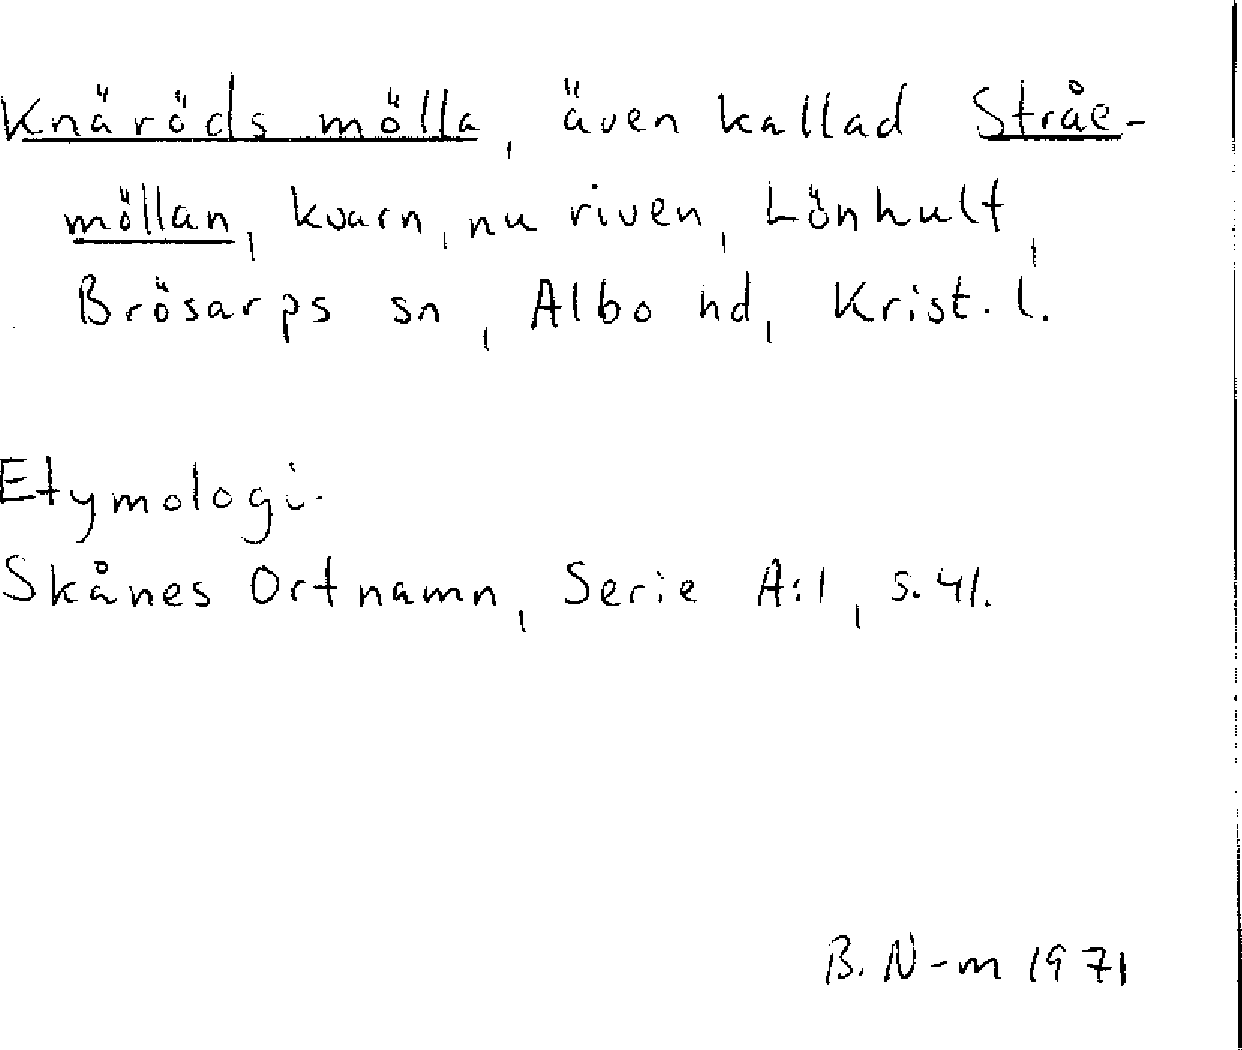 Knäröds mölla, även kallad Stråe-
möllan, kvarn, nu riven, Lönhult,
Brösarps sn, Albo hd, Krist. l.
Etymologi.
Skånes Ortnamn, Serie A:1, s. 41.
B. N-m 1971